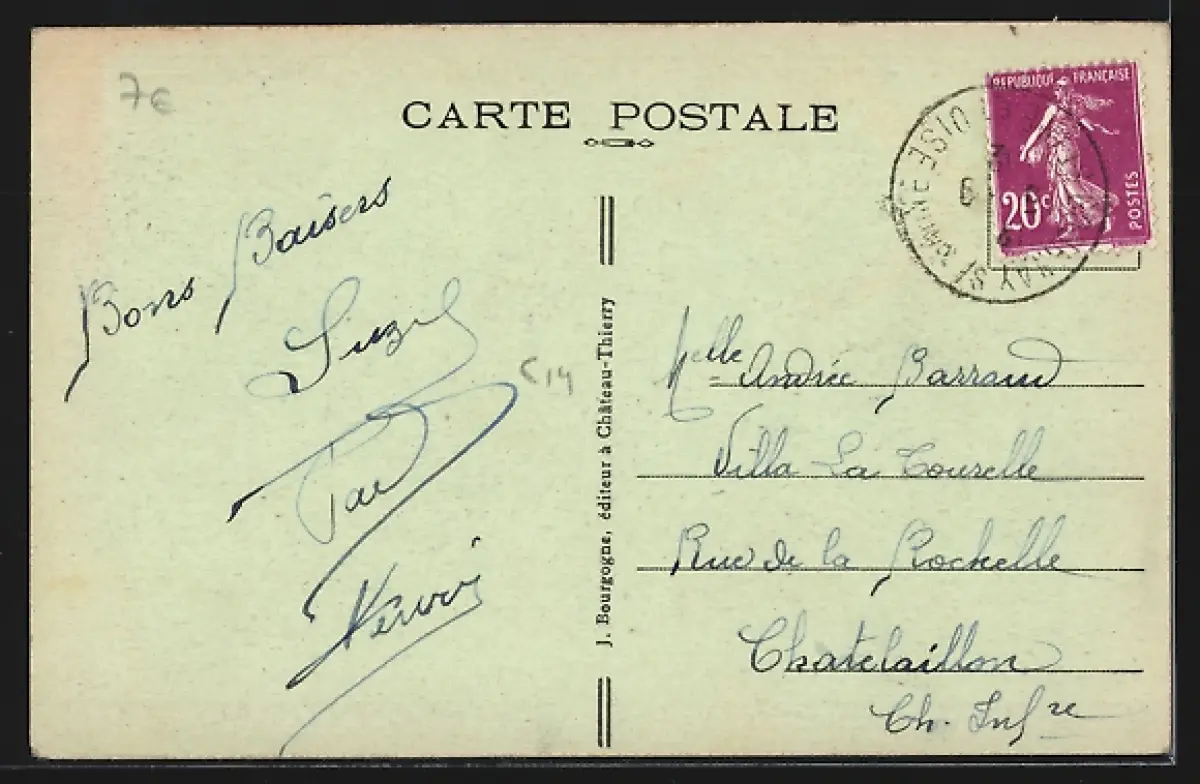 7€
CARTE POSTALE
REPUBLIQUE FRANÇAISE
20c
POSTES
SEINE ET OISE
Bons Baisers
C14
J. Bourgogne, éditeur à Château-Thierry
Melle Andrée Barraud
Villa La Tourelle
Rue de la Rochelle
Chatelaillon
Ch. Infre